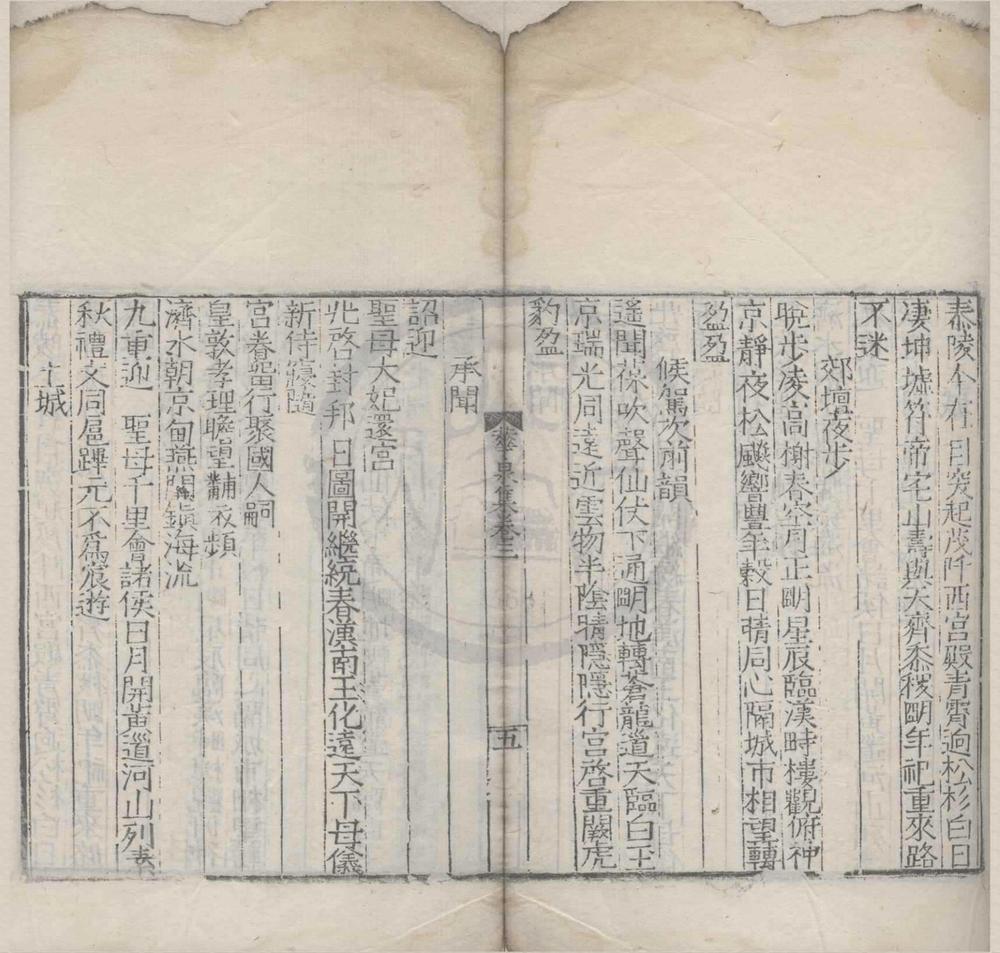 泰陵今有日突起茂阡西宮殿青霄逈松杉白日
淒坤墟竹帝宅山壽與天齊黍稷明年祀重來路
不迷
郊壇夜步
晩步凌高榭春空月正明星辰臨漢畤樓觀俯神
京靜夜松飈響豐年穀日晴同心隔城市相望轉
盈盈
候駕次前韻
遥聞葆吹聲仙仗下通明地轉蒼龍道天臨白玉
京瑞光同遠近雲物半陰晴隱隱行宮啓重闕虎
豹盈
華泉集卷三
五
承聞
詔迎
聖母太妃還宮
兆啓封邦日圖開繼統春漢南王化遠天下母儀
新侍寢隨
宮眷畱行聚國人嗣
皇敦孝理瞻望黼衣頻
濟水朝京甸燕關鎮海流
九重迎 聖母千里會諸侯日月開黄道河山列素
秋禮文同邑蹕元不爲宸遊
城